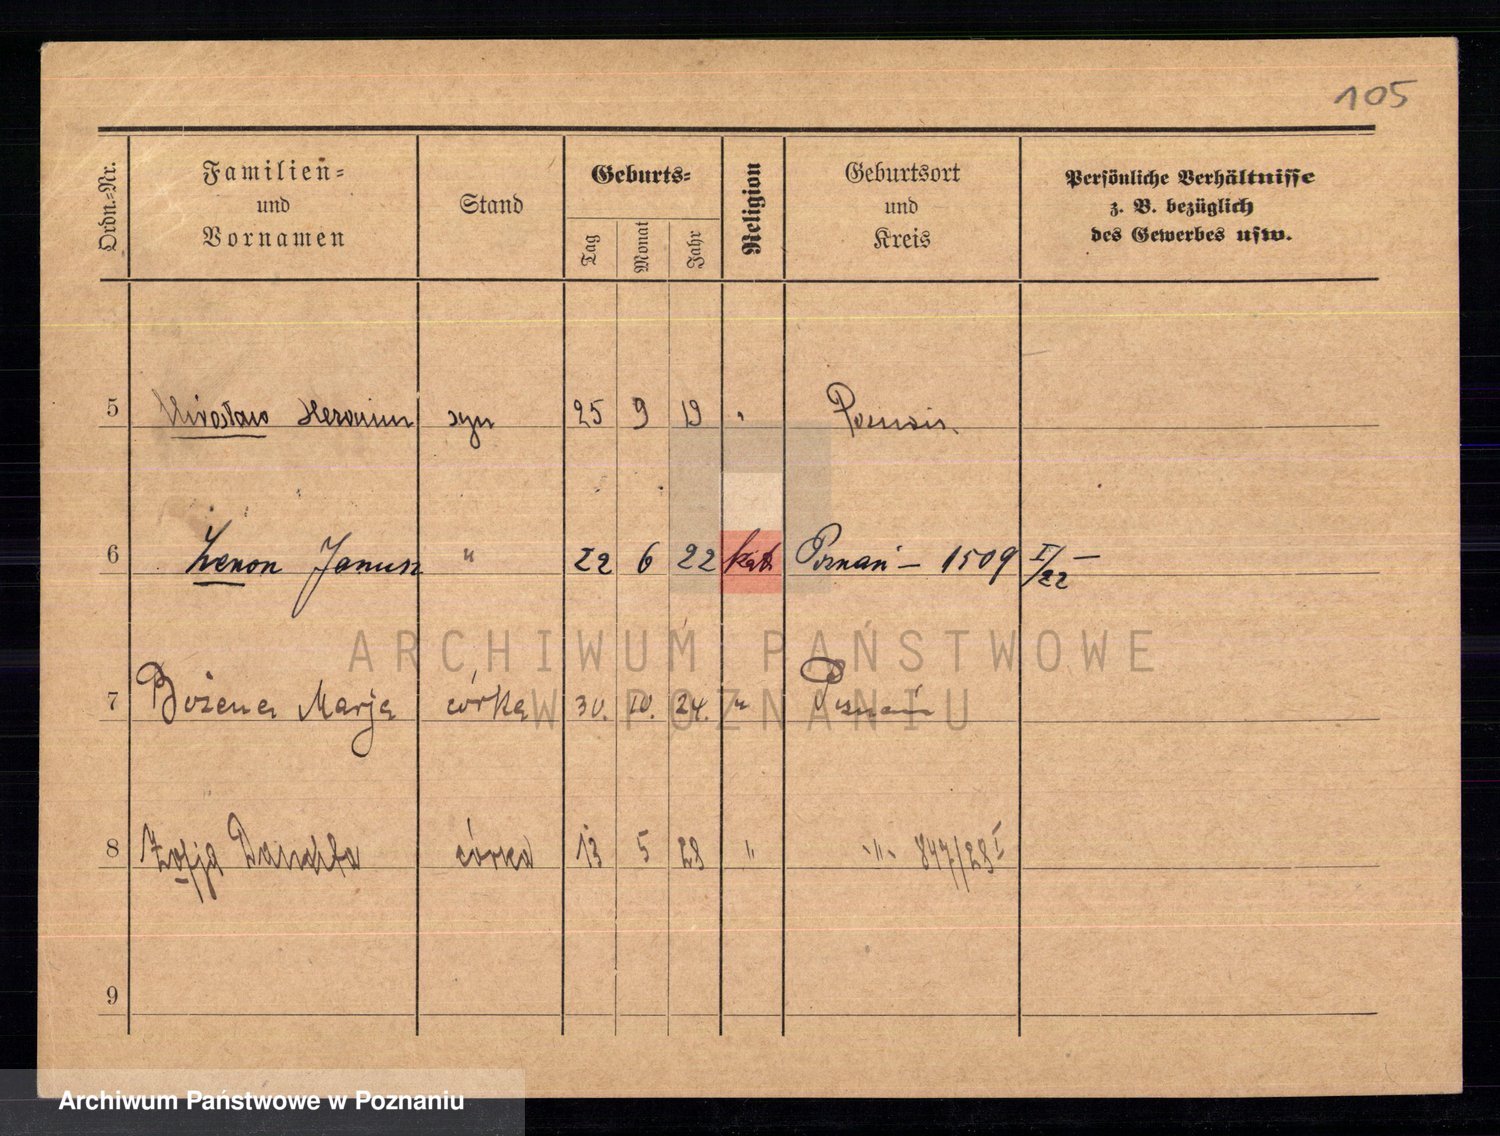 105
Ordn.-Nr.
Familien-
und
Vornamen
Stand
Geburts-
Tag
Monat
Jahr
Religion
Geburtsort
und
Kreis
Persönliche Verhältnisse
z. B. bezüglich
des Gewerbes usw.
5 Mirosław Hieronim syn 25 9 19 " Poznań
6 Zenon Janusz " 22 6 22 kat. Poznań – 1509 I/22 –
7 Bożena Marja córka 30. 10. 24. " Poznań
8 Zofja Danuta córka 13 5 28 " -"- 847/28 I
9
ARCHIWUM PAŃSTWOWE
W POZNANIU
Archiwum Państwowe w Poznaniu